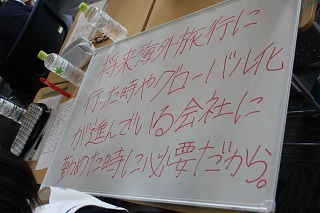 将来海外旅行に
行った時やグローバル化
が進んでいる会社に
勤めた時に必要だから。